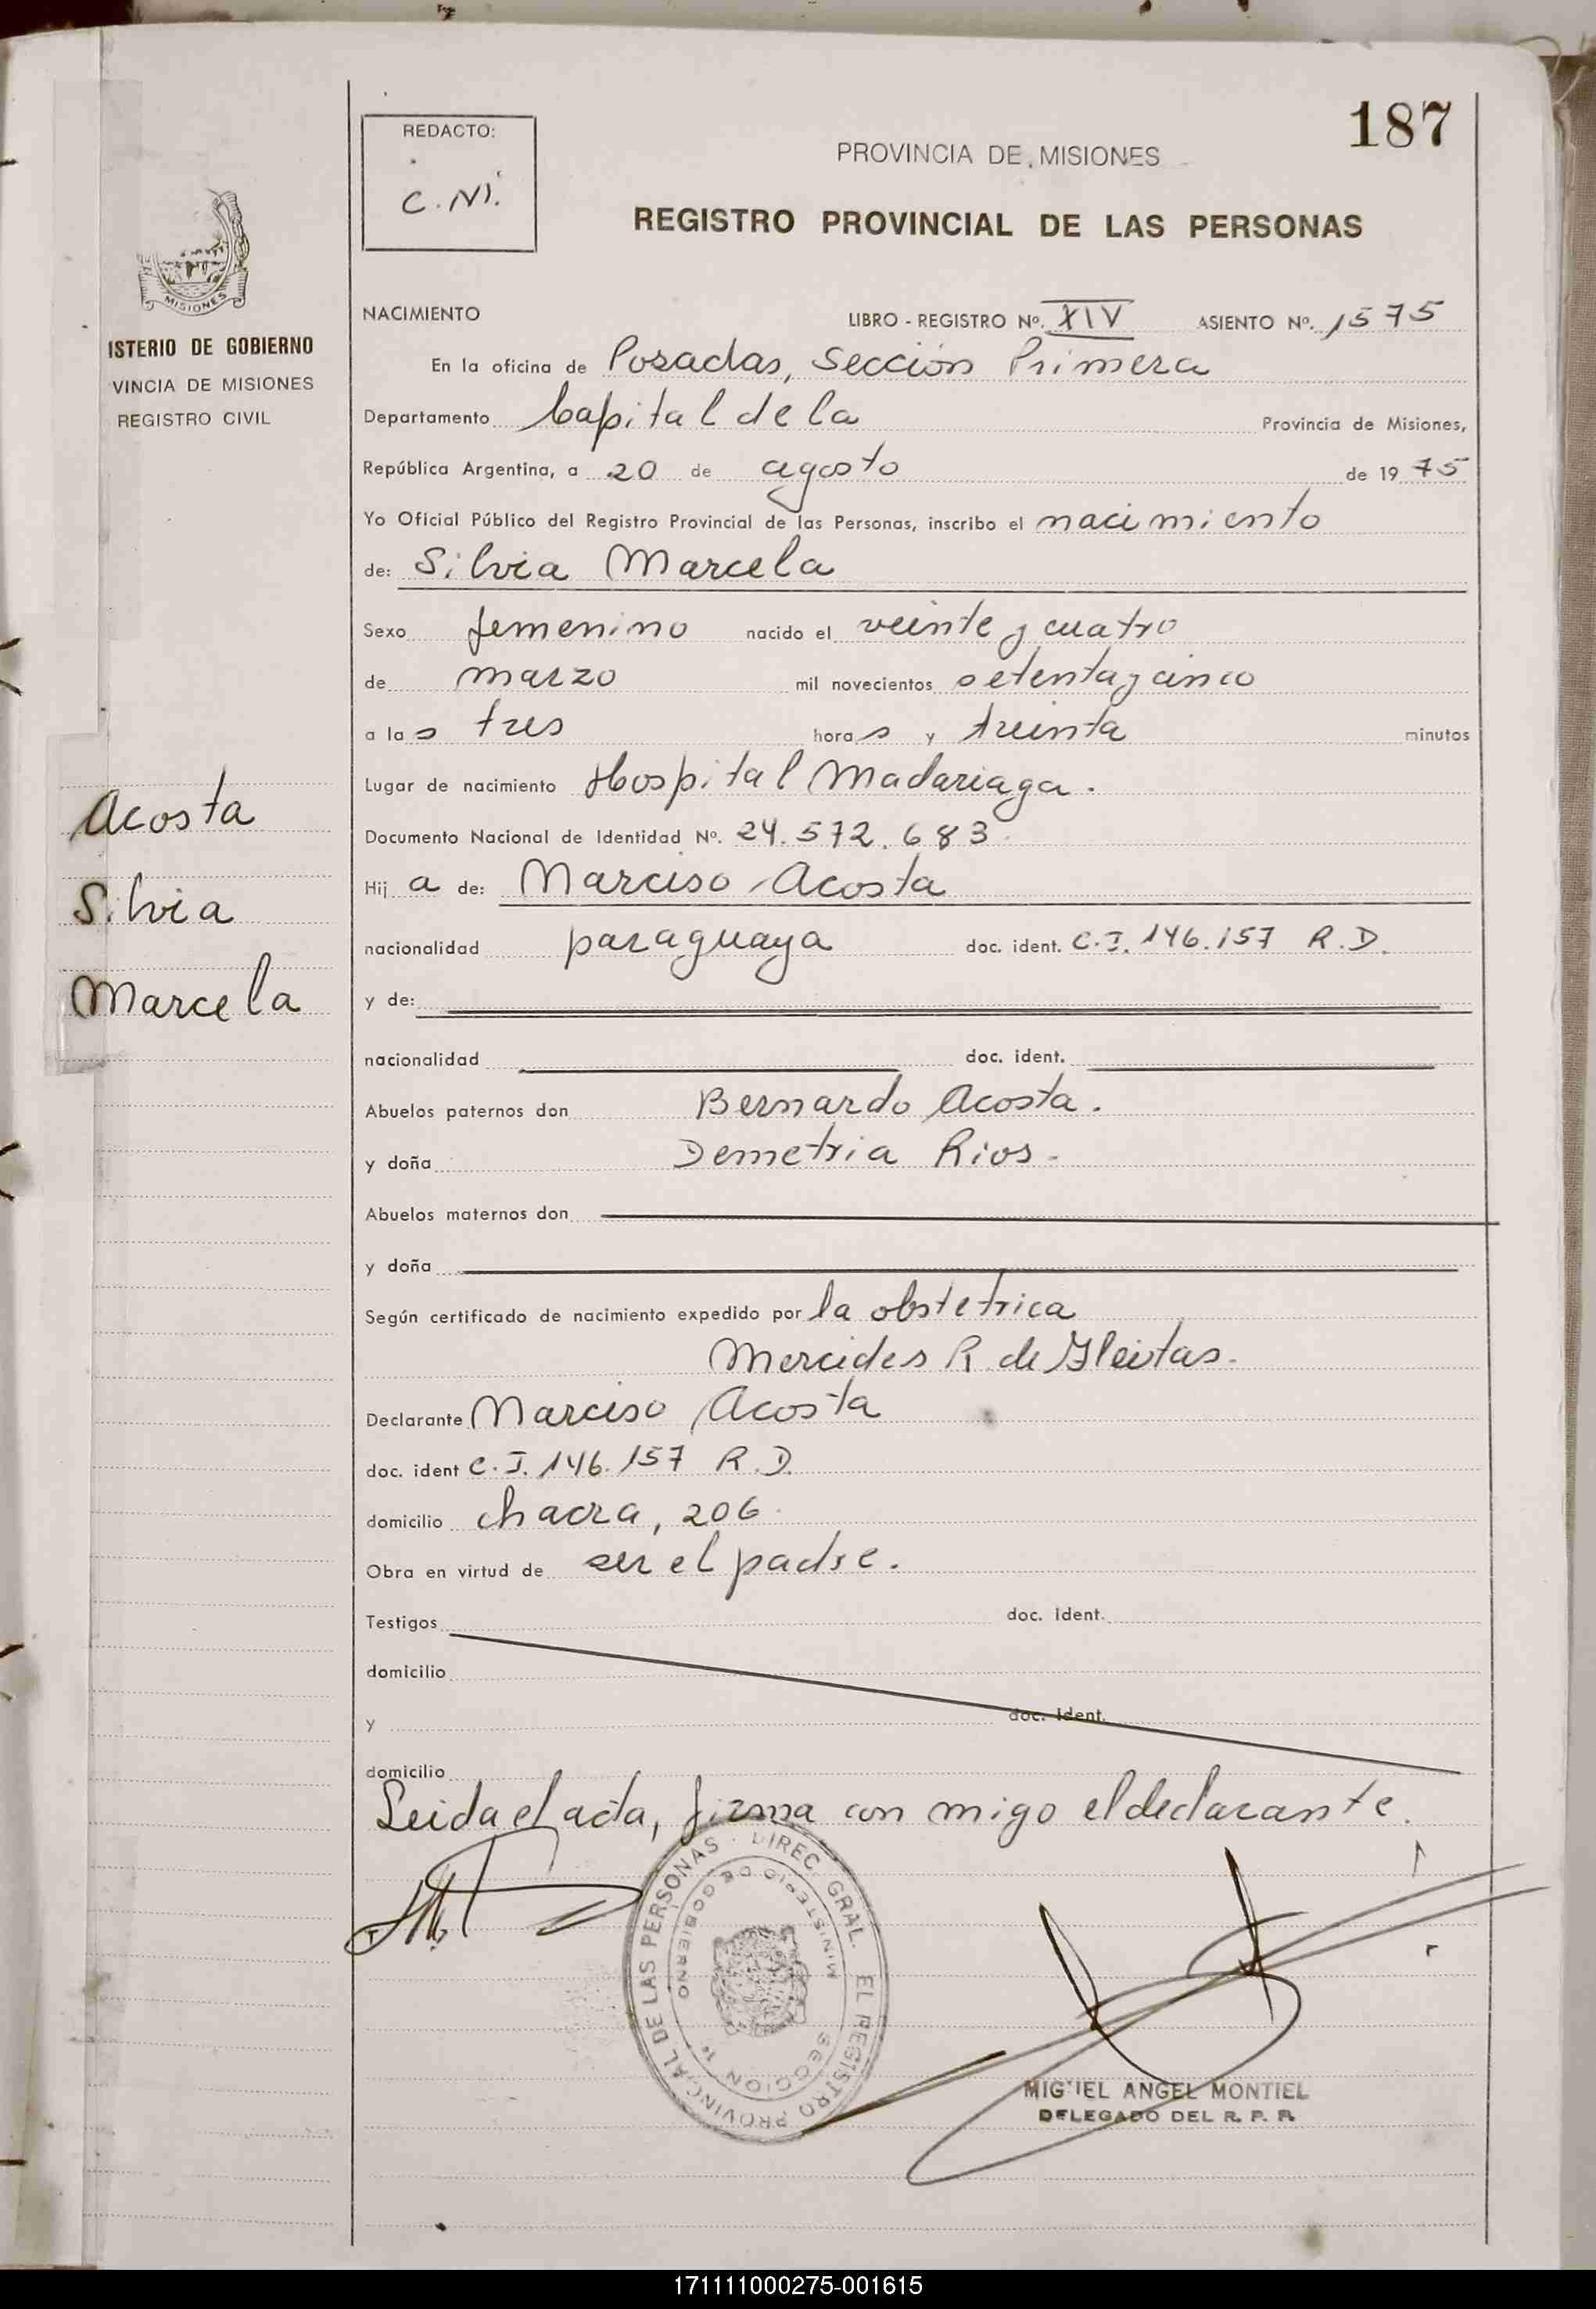 187
REDACTO:
C.Ni.
PROVINCIA DE MISIONES
REGISTRO PROVINCIAL DE LAS PERSONAS
MISIONES
ISTERIO DE GOBIERNO
VINCIA DE MISIONES
REGISTRO CIVIL
NACIMIENTO LIBRO - REGISTRO Nº. XIV ASIENTO Nº. 1575
En la oficina de Posadas, Sección Primera
Departamento Capital de la Provincia de Misiones,
República Argentina, a 20 de agosto de 1975
Yo Oficial Público del Registro Provincial de las Personas, inscribo el nacimiento
de: Silvia Marcela
Sexo femenino nacido el veinte y cuatro
de marzo mil novecientos setenta y cinco
a las tres horas y treinta minutos
Lugar de nacimiento Hospital Madariaga.
Acosta
Silvia
Marcela
Documento Nacional de Identidad Nº. 24.572.683
Hija de: Narciso Acosta
nacionalidad paraguaya doc. ident. C.I. 146.157 R.D.
y de:
nacionalidad doc. ident.
Abuelos paternos don Bernardo Acosta.
y doña Demetria Rios.
Abuelos maternos don
y doña
Según certificado de nacimiento expedido por la obstetrica
Mercides R. de Gleitas.
Declarante Narciso Acosta
doc. ident C.I. 146.157 R.D.
domicilio chacra, 206
Obra en virtud de ser el padre.
Testigos doc. ident.
domicilio
y doc. ident.
domicilio
Leida el acta, firma con migo el declarante.
DIREC. GRAL. EL REGISTRO PROVINCIAL DE LAS PERSONAS
MINISTERIO DE GOBIERNO
SECCION 1ª
MIGUEL ANGEL MONTIEL
DELEGADO DEL R. P. P.
171111000275-001615